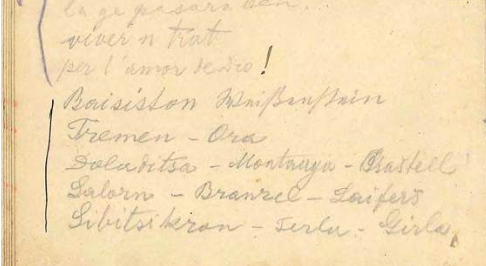 la ge pasara ben...
viver n trat
per l'amor de Dio!
Baisiston Weißenstein
Tremen - Ora
Doladitsa - Montauga - Gastell
Salorn - Branzel - Laifers
Sibitsikron - Terlu - Girla